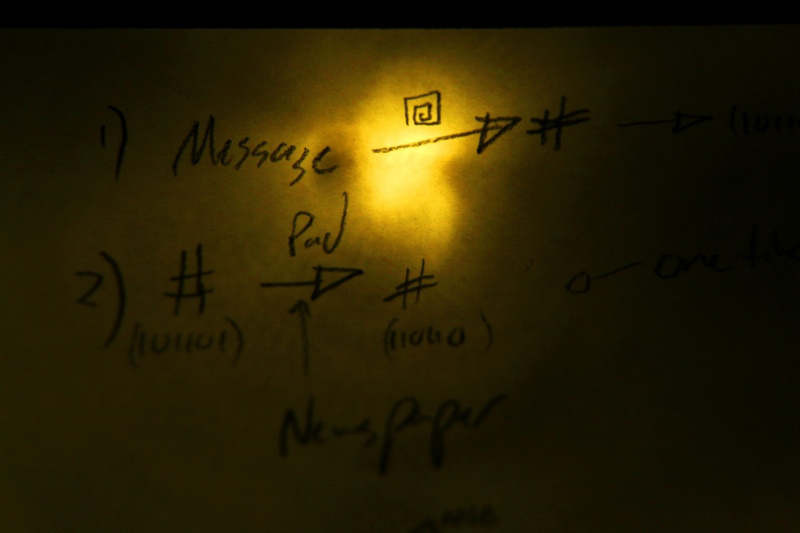 1) Message → # → (1011
Pad
2) # → #
(101101) (11010)
Newspaper